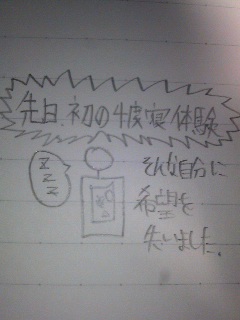 先日、初の4度寝体験
Z
Z
Z
そんな自分に
希望を
失いました。